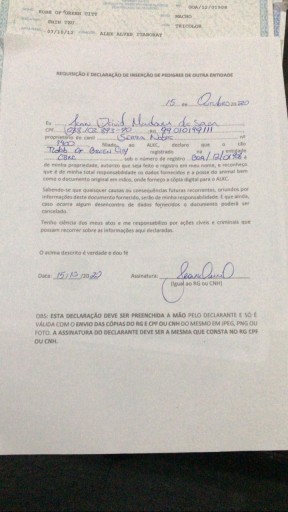 BOOK OF GREEN CITY
MACHO
TRICOLOR
07/12/12
REQUISIÇÃO E DECLARAÇÃO DE INSERÇÃO DE PEDIGREE DE OUTRA ENTIDADE
15 de Outubro 2020
Eu
CPF
proprietário do canil Serra Nitro nº
filiado ao ALKC, declaro que o cão
registrado na entidade
CBKC sob o número de registro
de minha propriedade, autorizo que seja feito o registro em meu nome, e reconheço
que é de minha total responsabilidade os dados fornecidos e a posse do animal bem
como o documento original em mãos, onde forneço a cópia digital para o ALKC.
Sabendo-se que quaisquer causas de consequências futuras recorrentes, oriundas por
informações deste documento fornecido, serão de minha responsabilidade. E que ainda,
caso ocorra algum desencontro de dados fornecidos o documento poderá ser
cancelado.
Tenho ciência dos meus atos e me responsabilizo por ações cíveis e criminais que
possam recorrer sobre as informações aqui declaradas.
O acima descrito é verdade e dou fé
Data: Assinatura:
(Igual ao RG ou CNH)
OBS: ESTA DECLARAÇÃO DEVE SER PREENCHIDA A MÃO PELO DECLARANTE E SÓ É
VÁLIDA COM O ENVIO DAS CÓPIAS DO RG E CPF OU CNH DO MESMO EM JPEG, PNG OU
FOTO. A ASSINATURA DO DECLARANTE DEVE SER A MESMA QUE CONSTA NO RG, CPF
OU CNH.